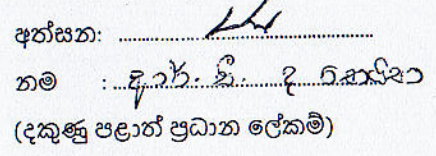 අත්සන: ..........................................
නම : ආර්. සී. ද සොයිසා
(දකුණු පළාත් ප්‍රධාන ලේකම්)